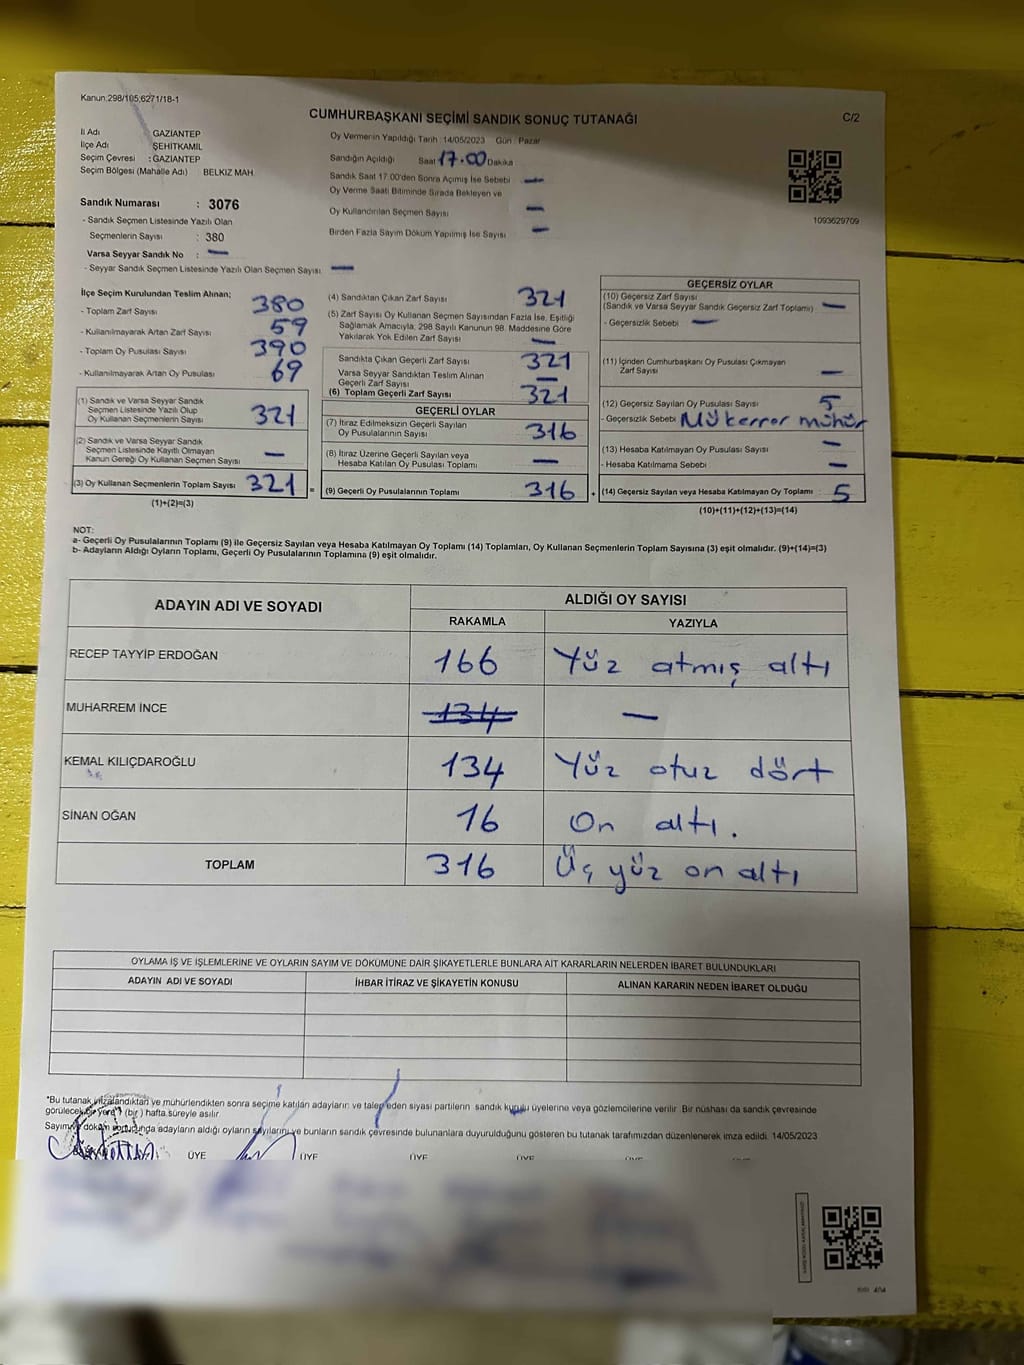 Kanun:298/105,6271/18-1
CUMHURBAŞKANI SEÇİMİ SANDIK SONUÇ TUTANAĞI
C/2
İl Adı GAZİANTEP
İlçe Adı ŞEHİTKAMİL
Seçim Çevresi : GAZİANTEP
Seçim Bölgesi (Mahalle Adı) BELKIZ MAH.
Sandık Numarası : 3076
- Sandık Seçmen Listesinde Yazılı Olan
Seçmenlerin Sayısı : 380
Varsa Seyyar Sandık No : —
- Seyyar Sandık Seçmen Listesinde Yazılı Olan Seçmen Sayısı: —
Oy Vermenin Yapıldığı Tarih : 14/05/2023 Gün : Pazar
Sandığın Açıldığı Saat 17.00 Dakika
Sandık Saat 17.00'den Sonra Açımış İse Sebebi —
Oy Verme Saati Bitiminde Sırada Bekleyen ve
Oy Kullandırılan Seçmen Sayısı —
Birden Fazla Sayım Döküm Yapılmış İse Sayısı —
1093629709
İlçe Seçim Kurulundan Teslim Alınan;
- Toplam Zarf Sayısı 380
- Kullanılmayarak Artan Zarf Sayısı 59
- Toplam Oy Pusulası Sayısı 390
- Kullanılmayarak Artan Oy Pusulası 69
(1) Sandık ve Varsa Seyyar Sandık
Seçmen Listesinde Yazılı Olup
Oy Kullanan Seçmenlerin Sayısı 321
(2) Sandık ve Varsa Seyyar Sandık
Seçmen Listesinde Kayıtlı Olmayan
Kanun Gereği Oy Kullanan Seçmen Sayısı —
(3) Oy Kullanan Seçmenlerin Toplam Sayısı 321 =
(1)+(2)=(3)
(4) Sandıktan Çıkan Zarf Sayısı 321
(5) Zarf Sayısı Oy Kullanan Seçmen Sayısından Fazla İse, Eşitliği
Sağlamak Amacıyla, 298 Sayılı Kanunun 98. Maddesine Göre
Yakılarak Yok Edilen Zarf Sayısı —
Sandıkta Çıkan Geçerli Zarf Sayısı 321
Varsa Seyyar Sandıktan Teslim Alınan
Geçerli Zarf Sayısı —
(6) Toplam Geçerli Zarf Sayısı 321
GEÇERLİ OYLAR
(7) İtiraz Edilmeksizin Geçerli Sayılan
Oy Pusulalarının Sayısı 316
(8) İtiraz Üzerine Geçerli Sayılan veya
Hesaba Katılan Oy Pusulası Toplamı —
(9) Geçerli Oy Pusulalarının Toplamı 316 +
GEÇERSİZ OYLAR
(10) Geçersiz Zarf Sayısı
(Sandık ve Varsa Seyyar Sandık Geçersiz Zarf Toplamı) —
- Geçersizlik Sebebi —
(11) İçinden Cumhurbaşkanı Oy Pusulası Çıkmayan
Zarf Sayısı —
(12) Geçersiz Sayılan Oy Pusulası Sayısı 5
- Geçersizlik Sebebi Mükerrer mühür
(13) Hesaba Katılmayan Oy Pusulası Sayısı —
- Hesaba Katılmama Sebebi —
(14) Geçersiz Sayılan veya Hesaba Katılmayan Oy Toplamı : 5
(10)+(11)+(12)+(13)=(14)
NOT:
a- Geçerli Oy Pusulalarının Toplamı (9) ile Geçersiz Sayılan veya Hesaba Katılmayan Oy Toplamı (14) Toplamları, Oy Kullanan Seçmenlerin Toplam Sayısına (3) eşit olmalıdır. (9)+(14)=(3)
b- Adayların Aldığı Oyların Toplamı, Geçerli Oy Pusulalarının Toplamına (9) eşit olmalıdır.
ADAYIN ADI VE SOYADI ALDIĞI OY SAYISI
RAKAMLA YAZIYLA
RECEP TAYYİP ERDOĞAN 166 Yüz atmış altı
MUHARREM İNCE 134 —
KEMAL KILIÇDAROĞLU 134 Yüz otuz dört
SİNAN OĞAN 16 On altı.
TOPLAM 316 Üç yüz on altı
OYLAMA İŞ VE İŞLEMLERİNE VE OYLARIN SAYIM VE DÖKÜMÜNE DAİR ŞİKAYETLERLE BUNLARA AİT KARARLARIN NELERDEN İBARET BULUNDUKLARI
ADAYIN ADI VE SOYADI İHBAR İTİRAZ VE ŞİKAYETİN KONUSU ALINAN KARARIN NEDEN İBARET OLDUĞU
*Bu tutanak imzalandıktan ve mühürlendikten sonra seçime katılan adayların ve talep eden siyasi partilerin sandık kurulu üyelerine veya gözlemcilerine verilir. Bir nüshası da sandık çevresinde
görülecek bir yere (bir) hafta süreyle asılır.
Sayım döküm sonunda adayların aldığı oyların sayılarını ve bunların sandık çevresinde bulunanlara duyurulduğunu gösteren bu tutanak tarafımızdan düzenlenerek imza edildi. 14/05/2023
ÜYE ÜYE ÜYE ÜYE